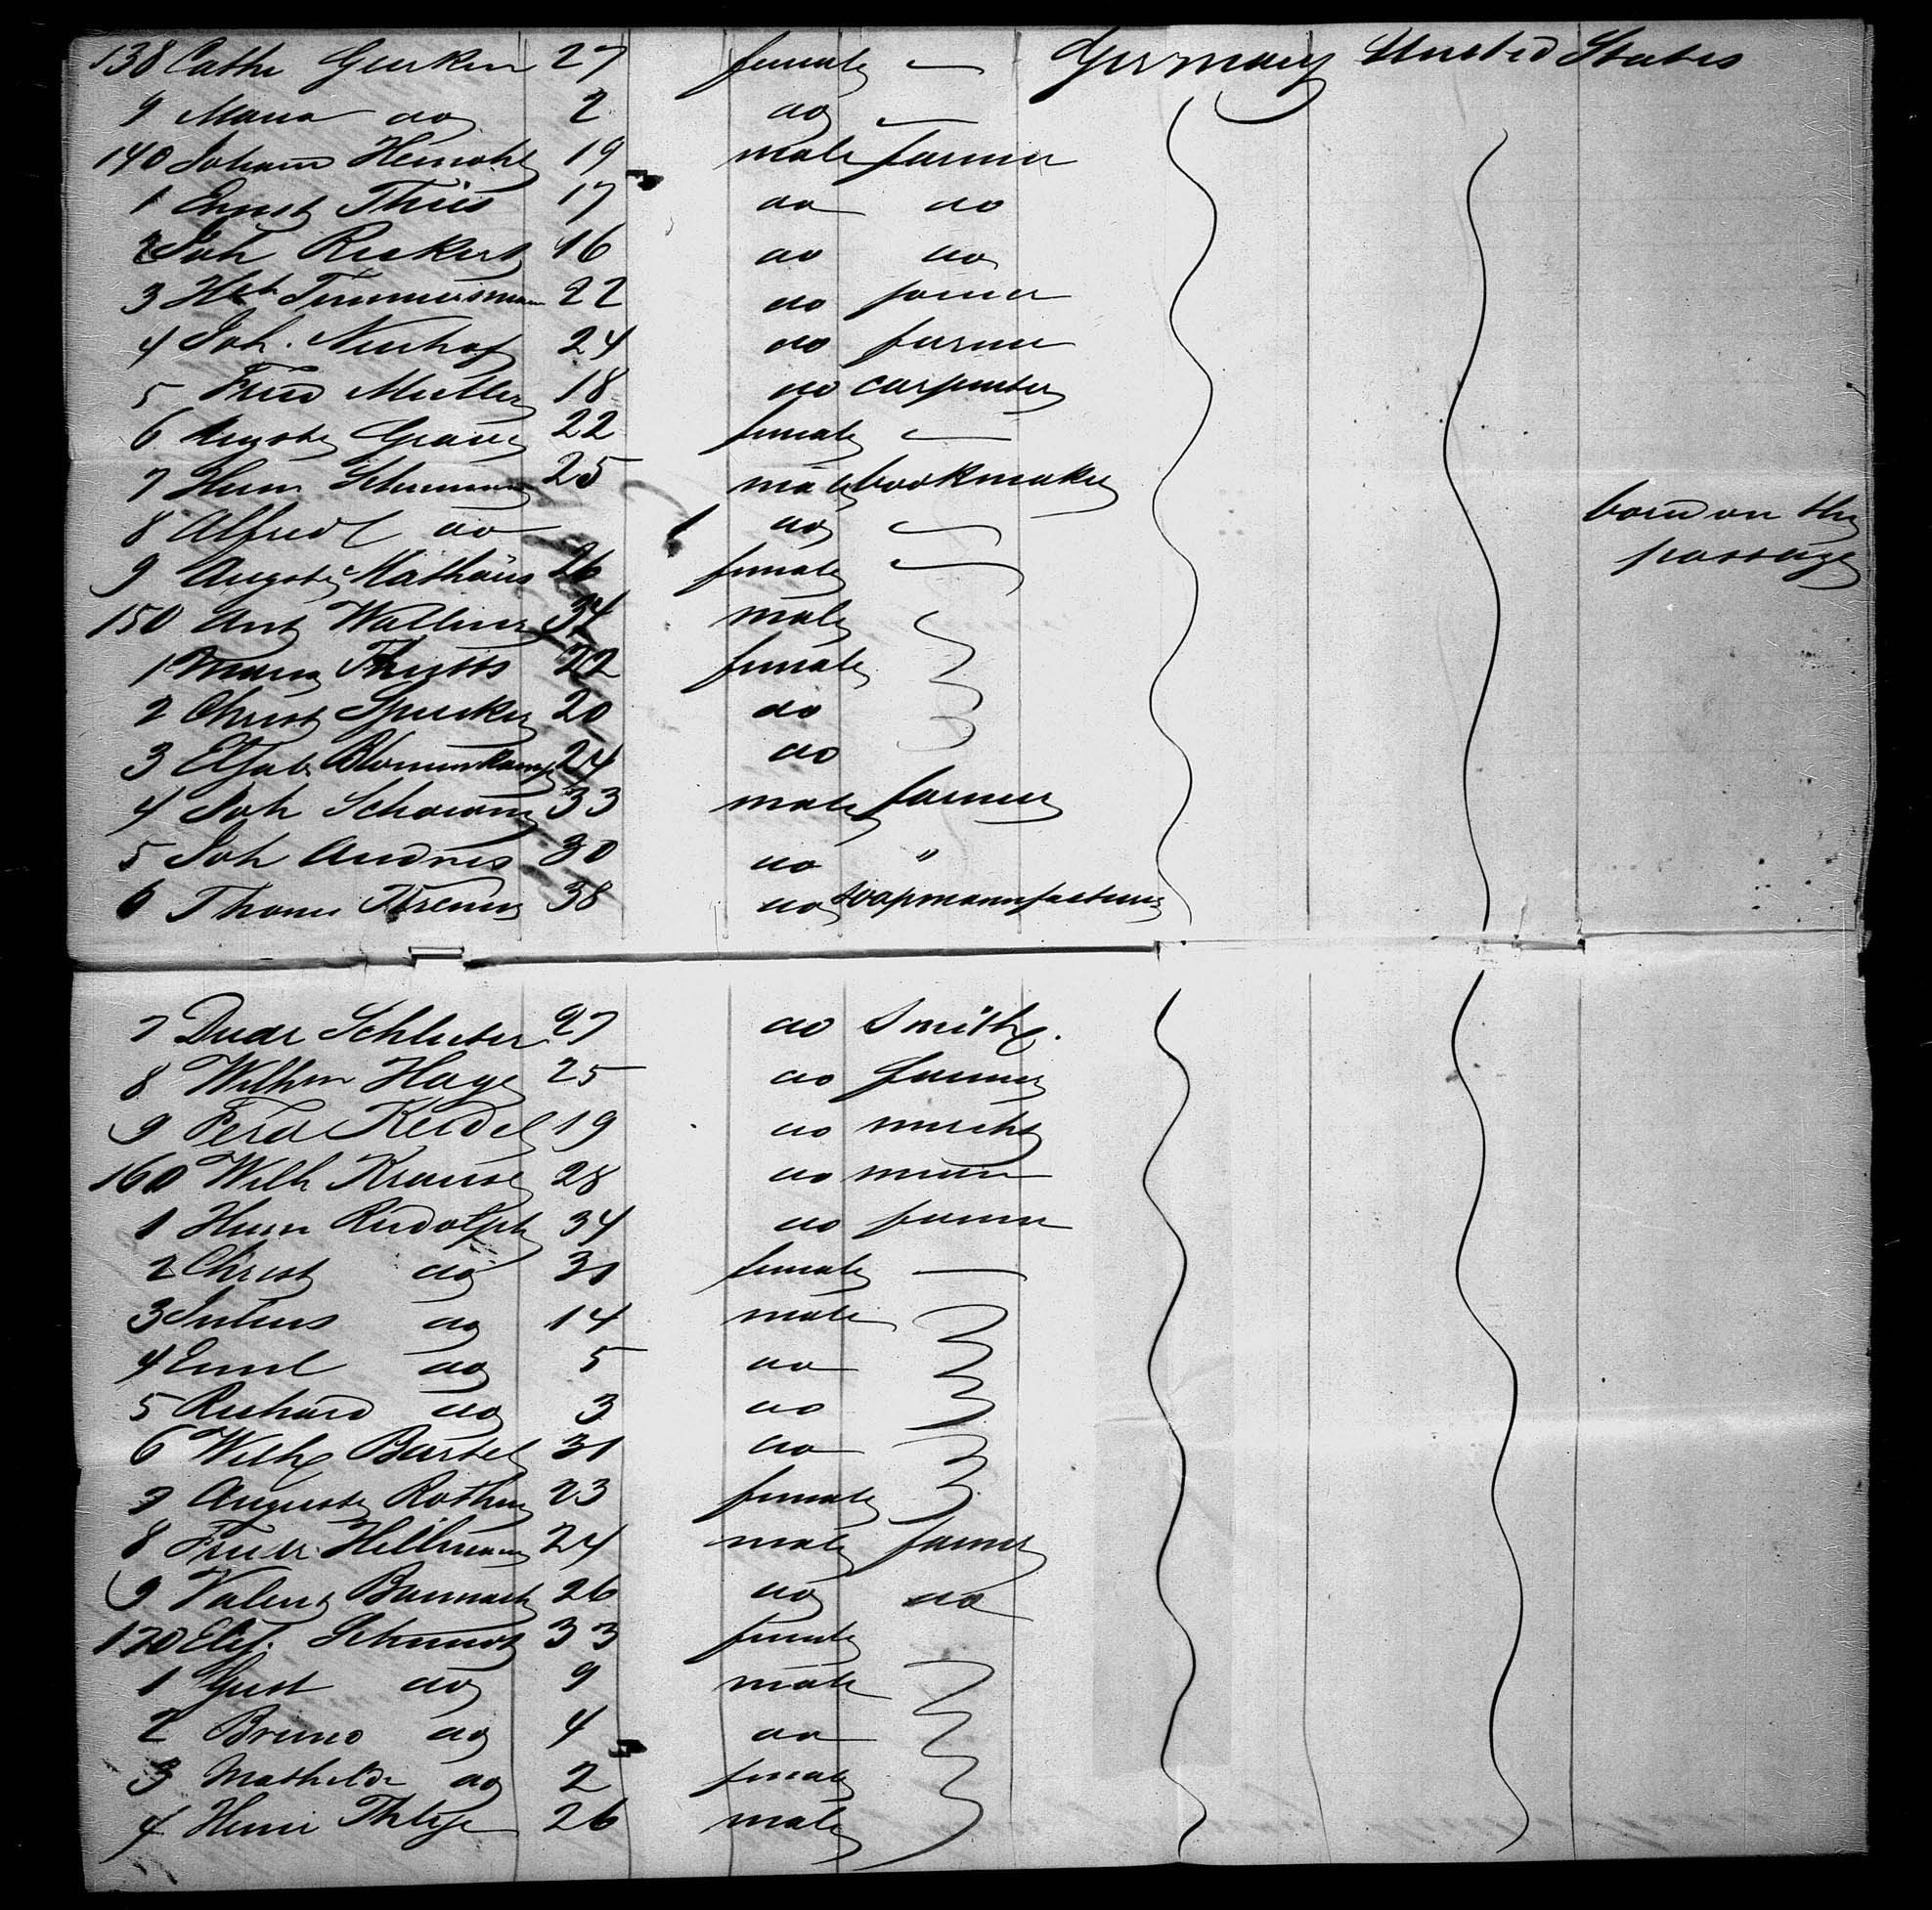 138 Cathe Geerken 27 female — Germany United States
9 Maria do 2 do —
140 Johann Heinrich 19 male farmer
1 Ernst Thies 17 do do
2 Joh Rickert 16 do do
3 Hch Timmermann 22 do joiner
4 Joh. Neuhof 24 do farmer
5 Fried Muller 18 do carpenter
6 Auguste 22 female —
7 Herm Schumann 25 male bookmaker
8 Alfred do do — born on the
passage
9 Auguste Mathäus 26 female —
150 Ant Wallner 34 male
1 Maria 22 female
2 Christ Spricker 20 do
3 Elsabe Blomenkamp 24 do
4 Joh 33 male farmer
5 Joh Andres 30 do "
6 Thomas 38 do soapmanufacturer
7 Diedr Schluter 27 do Smith.
8 Wilhm Hage 25 do farmer
9 Ferd Keidel 19 do mercht
160 Wilh Krause 28 do
1 Herm Rudolph 34 do farmer
2 Christ do female —
3 Julius do 14 male
4 Emil do 5 do
5 Richard do 3 do
6 Wilh Bartel 31 do
7 Auguste Rothe 23 female
8 Friedr Hillmann 24 male farmer
9 Valent 26 do do
170 Elis. Schmidt 33 female
1 Gust do 9 male
2 Bruno do 4 do
3 Mathilde do 2 female
4 26 male